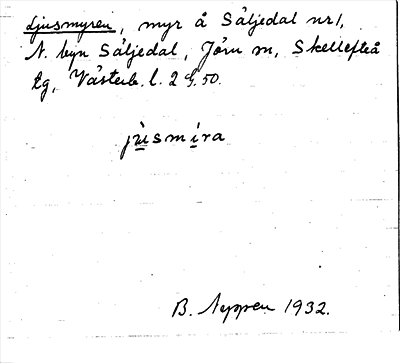 Ljusmyren, myr å Såljedal nr 1,
N. byn Såljedal, Jörn m, Skellefteå
tg, Västerb. l. 2 G. 50.
jùsmira
B. Seppen 1932.